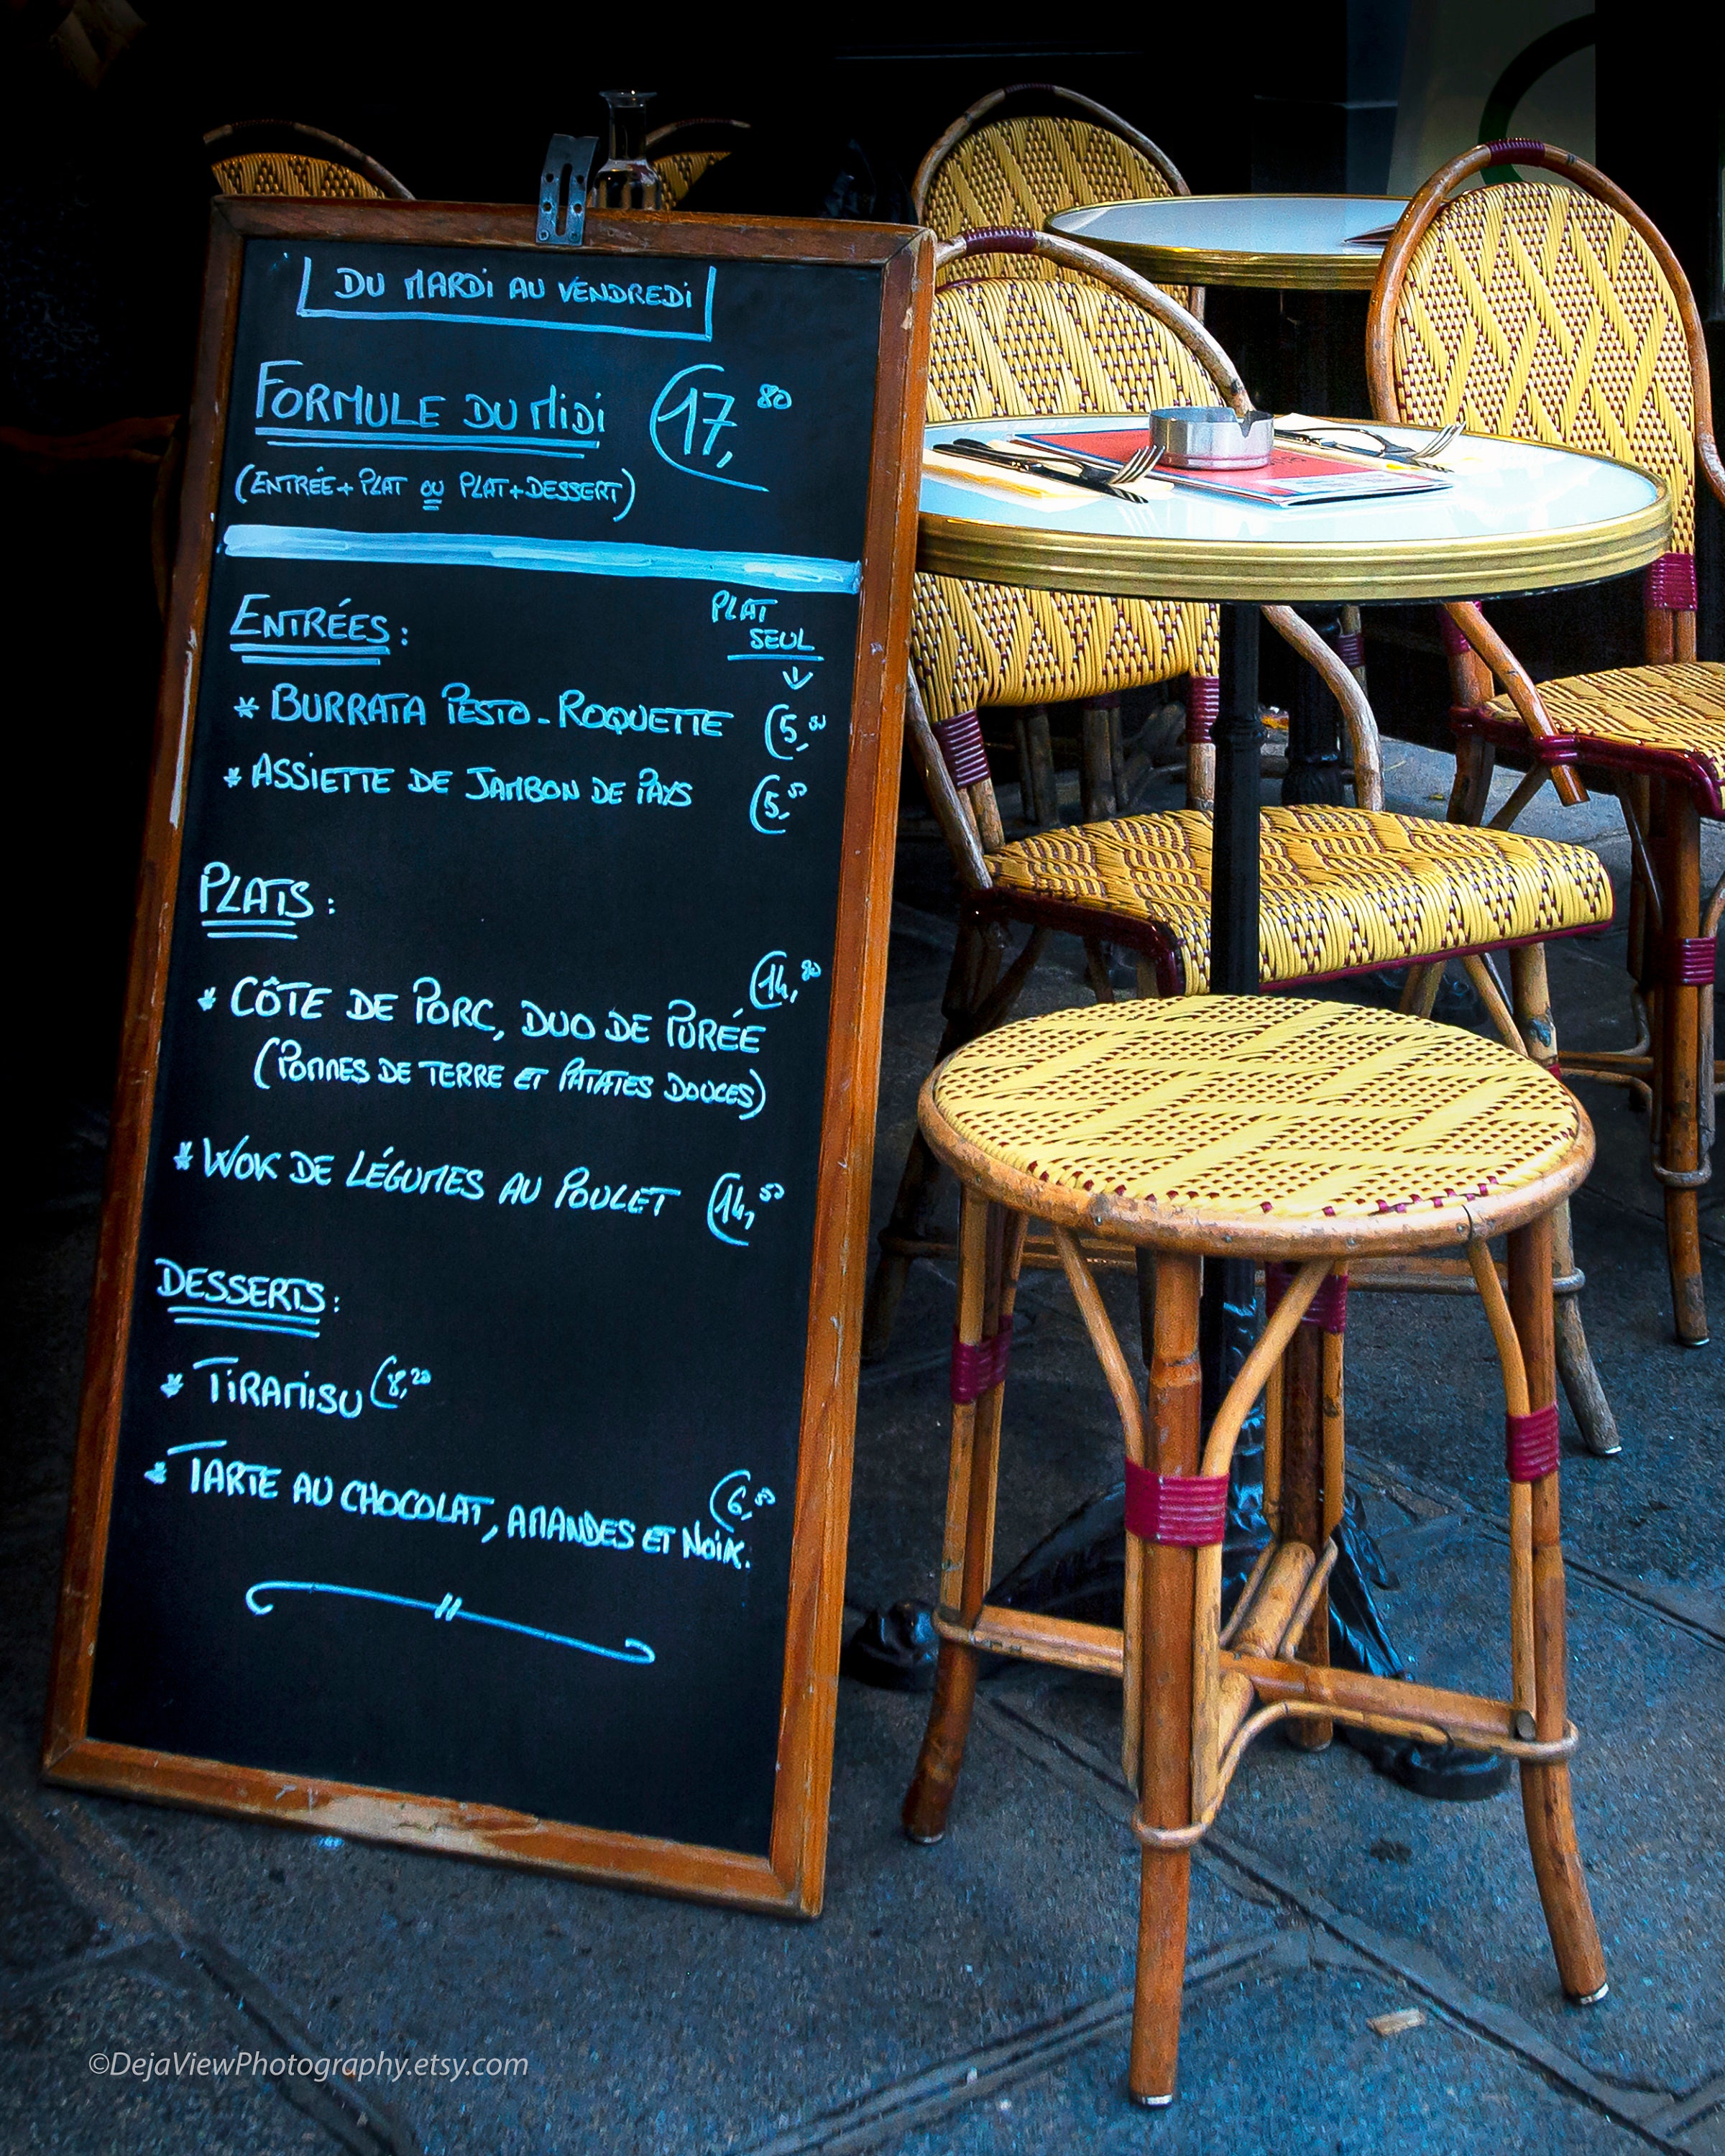 DU MARDI AU VENDREDI
FORMULE DU MIDI 17,80
(ENTRÉE + PLAT OU PLAT + DESSERT)
PLAT
SEUL
ENTRÉES :
* BURRATA PESTO - ROQUETTE 5,
* ASSIETTE DE JAMBON DE PAYS 5,50
PLATS :
14,
* CÔTE DE PORC, DUO DE PURÉE
(POMMES DE TERRE ET PATATES DOUCES)
* WOK DE LÉGUMES AU POULET 14,50
DESSERTS :
* TIRAMISU 8,20
6,50
* TARTE AU CHOCOLAT, AMANDES ET NOIX.
©DejaViewPhotography.etsy.com